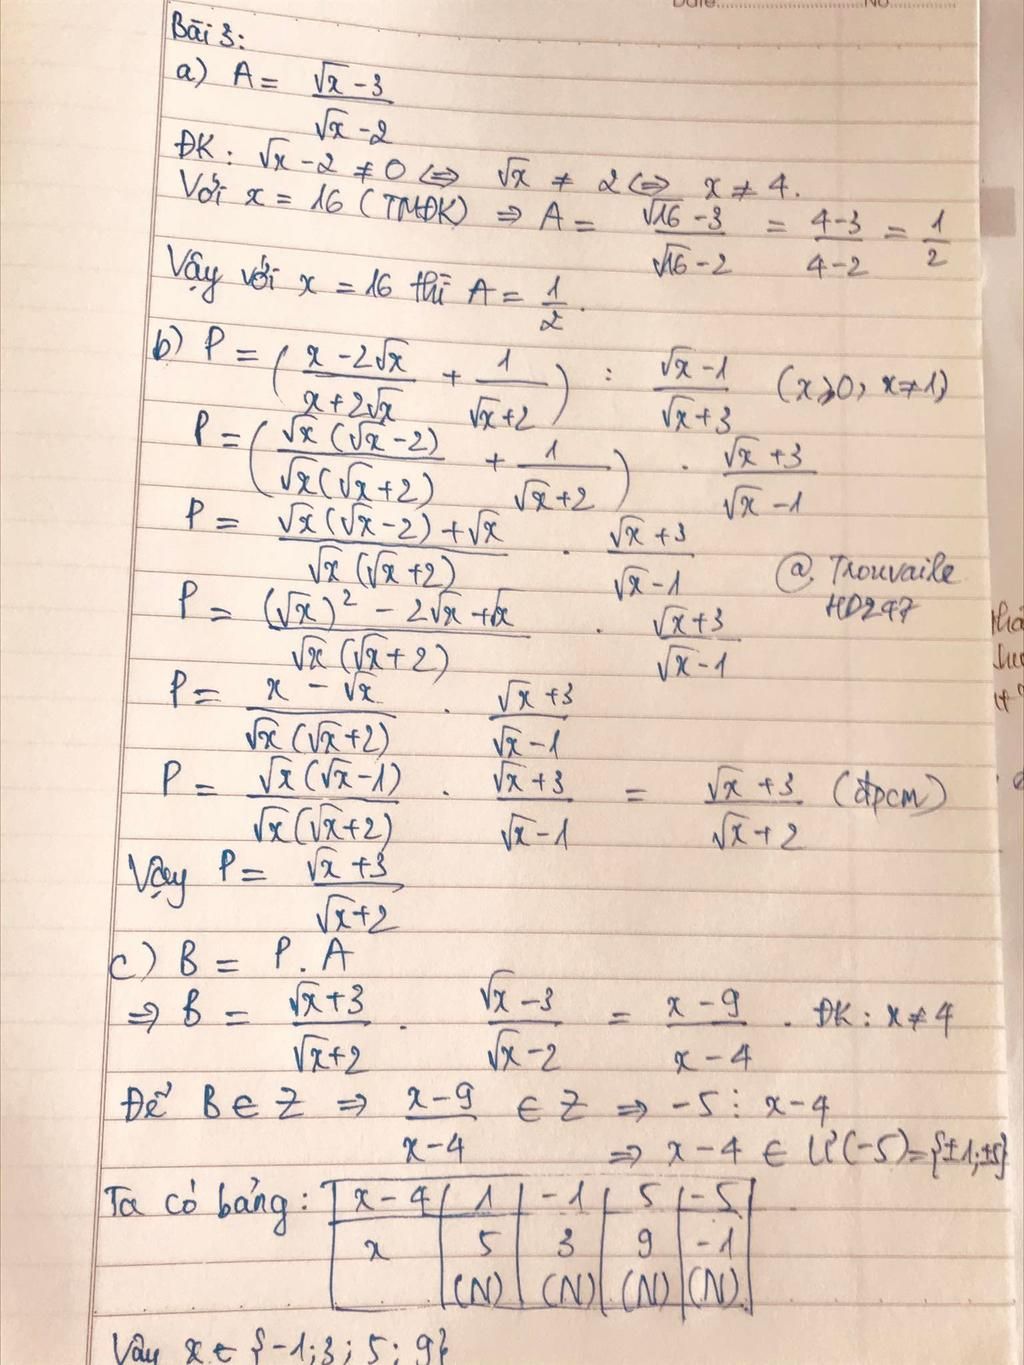 Date............No
Bài 3:
a) A = (√x - 3)/(√x - 2)
ĐK: √x - 2 ≠ 0 ⇔ √x ≠ 2 ⇔ x ≠ 4.
Với x = 16 (TMĐK) ⇒ A = (√16 - 3)/(√16 - 2) = (4-3)/(4-2) = 1/2
Vậy với x = 16 thì A = 1/2.
b) P = ((x - 2√x)/(x + 2√x) + 1/(√x+2)) : (√x - 1)/(√x + 3) (x>0, x≠1)
P = (√x(√x - 2)/√x(√x + 2) + 1/(√x + 2)) . (√x + 3)/(√x - 1)
P = (√x(√x - 2) + √x)/√x(√x + 2) . (√x + 3)/(√x - 1)
@ Trouvaile
HD247
P = ((√x)² - 2√x + √x)/√x(√x + 2) . (√x + 3)/(√x - 1)
P = (x - √x)/√x(√x + 2) . (√x + 3)/(√x - 1)
P = √x(√x - 1)/√x(√x + 2) . (√x + 3)/(√x - 1) = (√x + 3)/(√x + 2) (đpcm)
Vậy P = (√x + 3)/(√x + 2)
c) B = P . A
⇒ B = (√x + 3)/(√x + 2) . (√x - 3)/(√x - 2) = (x - 9)/(x - 4) . ĐK: x ≠ 4
Để B ∈ Z ⇒ (x - 9)/(x - 4) ∈ Z ⇒ -5 ⋮ x - 4
⇒ x - 4 ∈ Ư(-5) = {±1; ±5}
Ta có bảng: x - 4 | 1 | -1 | 5 | -5
x | 5 | 3 | 9 | -1
(N) (N) (N) (N)
Vậy x ∈ {-1; 3; 5; 9}